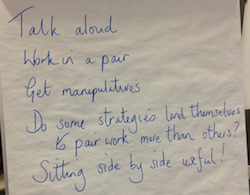 Talk aloud
Work in a pair
Get manipulatives
Do some strategies lend themselves
to pair work more than others?
Sitting side by side useful!